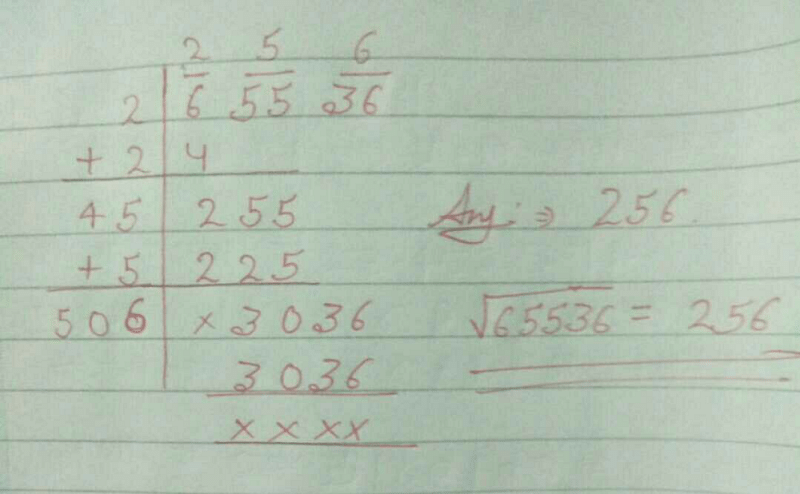 2 5 6
2 6 55 36
+ 2 4
45 255
+ 5 225
506 × 3036
3036
× × × ×
Ans: ⇒ 256.
√65536 = 256